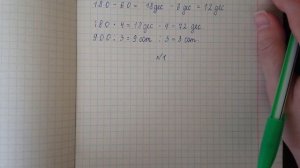 180 - 60 = 18 дес - 6 дес = 12 дес
180 · 4 = 18 дес · 4 = 72 дес
900 : 3 = 9 сот : 3 = 3 сот
№1